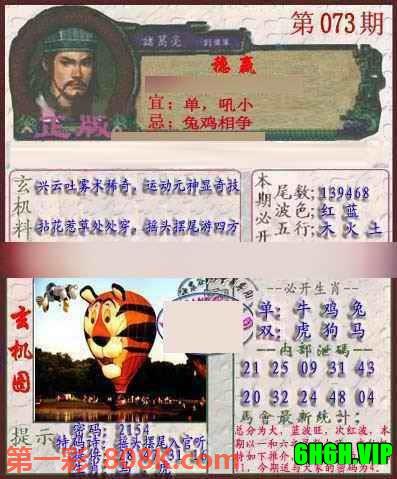 第073期
諸葛亮
稳赢
宜；单，吼小
忌；兔鸡相争
正版
玄机料
兴云吐雾术稀奇，运动元神显奇技
拈花惹草处处穿，摇头摆尾游四方
本期必开
尾数；139468
波色；红 蓝
五行；木 火 土
--必开生肖--
单：牛 鸡 兔
双：虎 狗 马
--内部泄码--
21 25 09 31 43
20 32 24 48 04
馬會最新統計：
玄机图
提示
密码：2154
特码诗：摇头摆尾入官听
第一彩-808K.com
6HGH.VIP